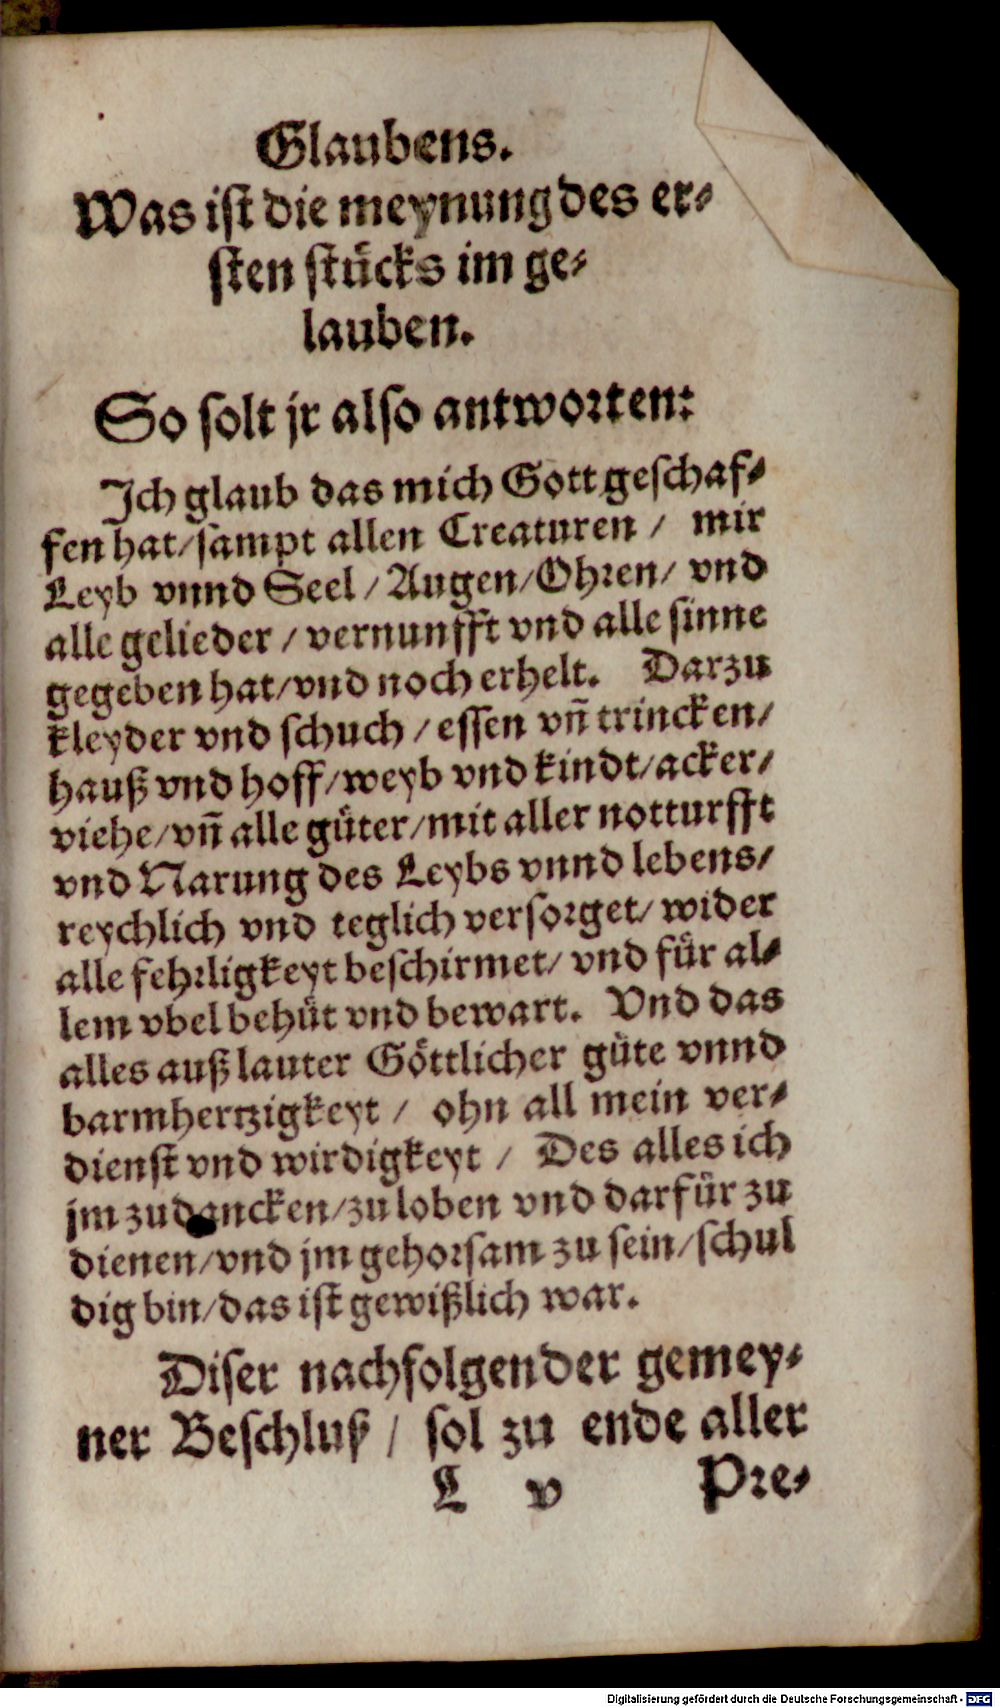 Glaubens.
Was ist die meynung des er⸗
sten stücks im ge⸗
lauben.
So solt jr also antworten:
Ich glaub das mich Gott geschaf⸗
fen hat/sampt allen Creaturen / mir
Leyb vnnd Seel / Augen/Ohren/ vnd
alle gelieder / vernunfft vnd alle sinne
gegeben hat/vnd noch erhelt. Darzu
kleyder vnd schuch / essen vn̄ trincken/
hauß vnd hoff/weyb vnd kindt/acker/
viehe/vn̄ alle güter/mit aller notturfft
vnd Narung des Leybs vnnd lebens/
reychlich vnd teglich versorget/ wider
alle fehrligkeyt beschirmet/ vnd für al⸗
lem vbel behüt vnd bewart. Vnd das
alles auß lauter Göttlicher güte vnnd
barmhertzigkeyt / ohn all mein ver⸗
dienst vnd wirdigkeyt / Des alles ich
jm zu dancken/zu loben vnd darfür zu
dienen/vnd jm gehorsam zu sein/schul
dig bin/das ist gewißlich war.
Diser nachfolgender gemey⸗
ner Beschluß / sol zu ende aller
L v Pre⸗
Digitalisierung gefördert durch die Deutsche Forschungsgemeinschaft - DFG